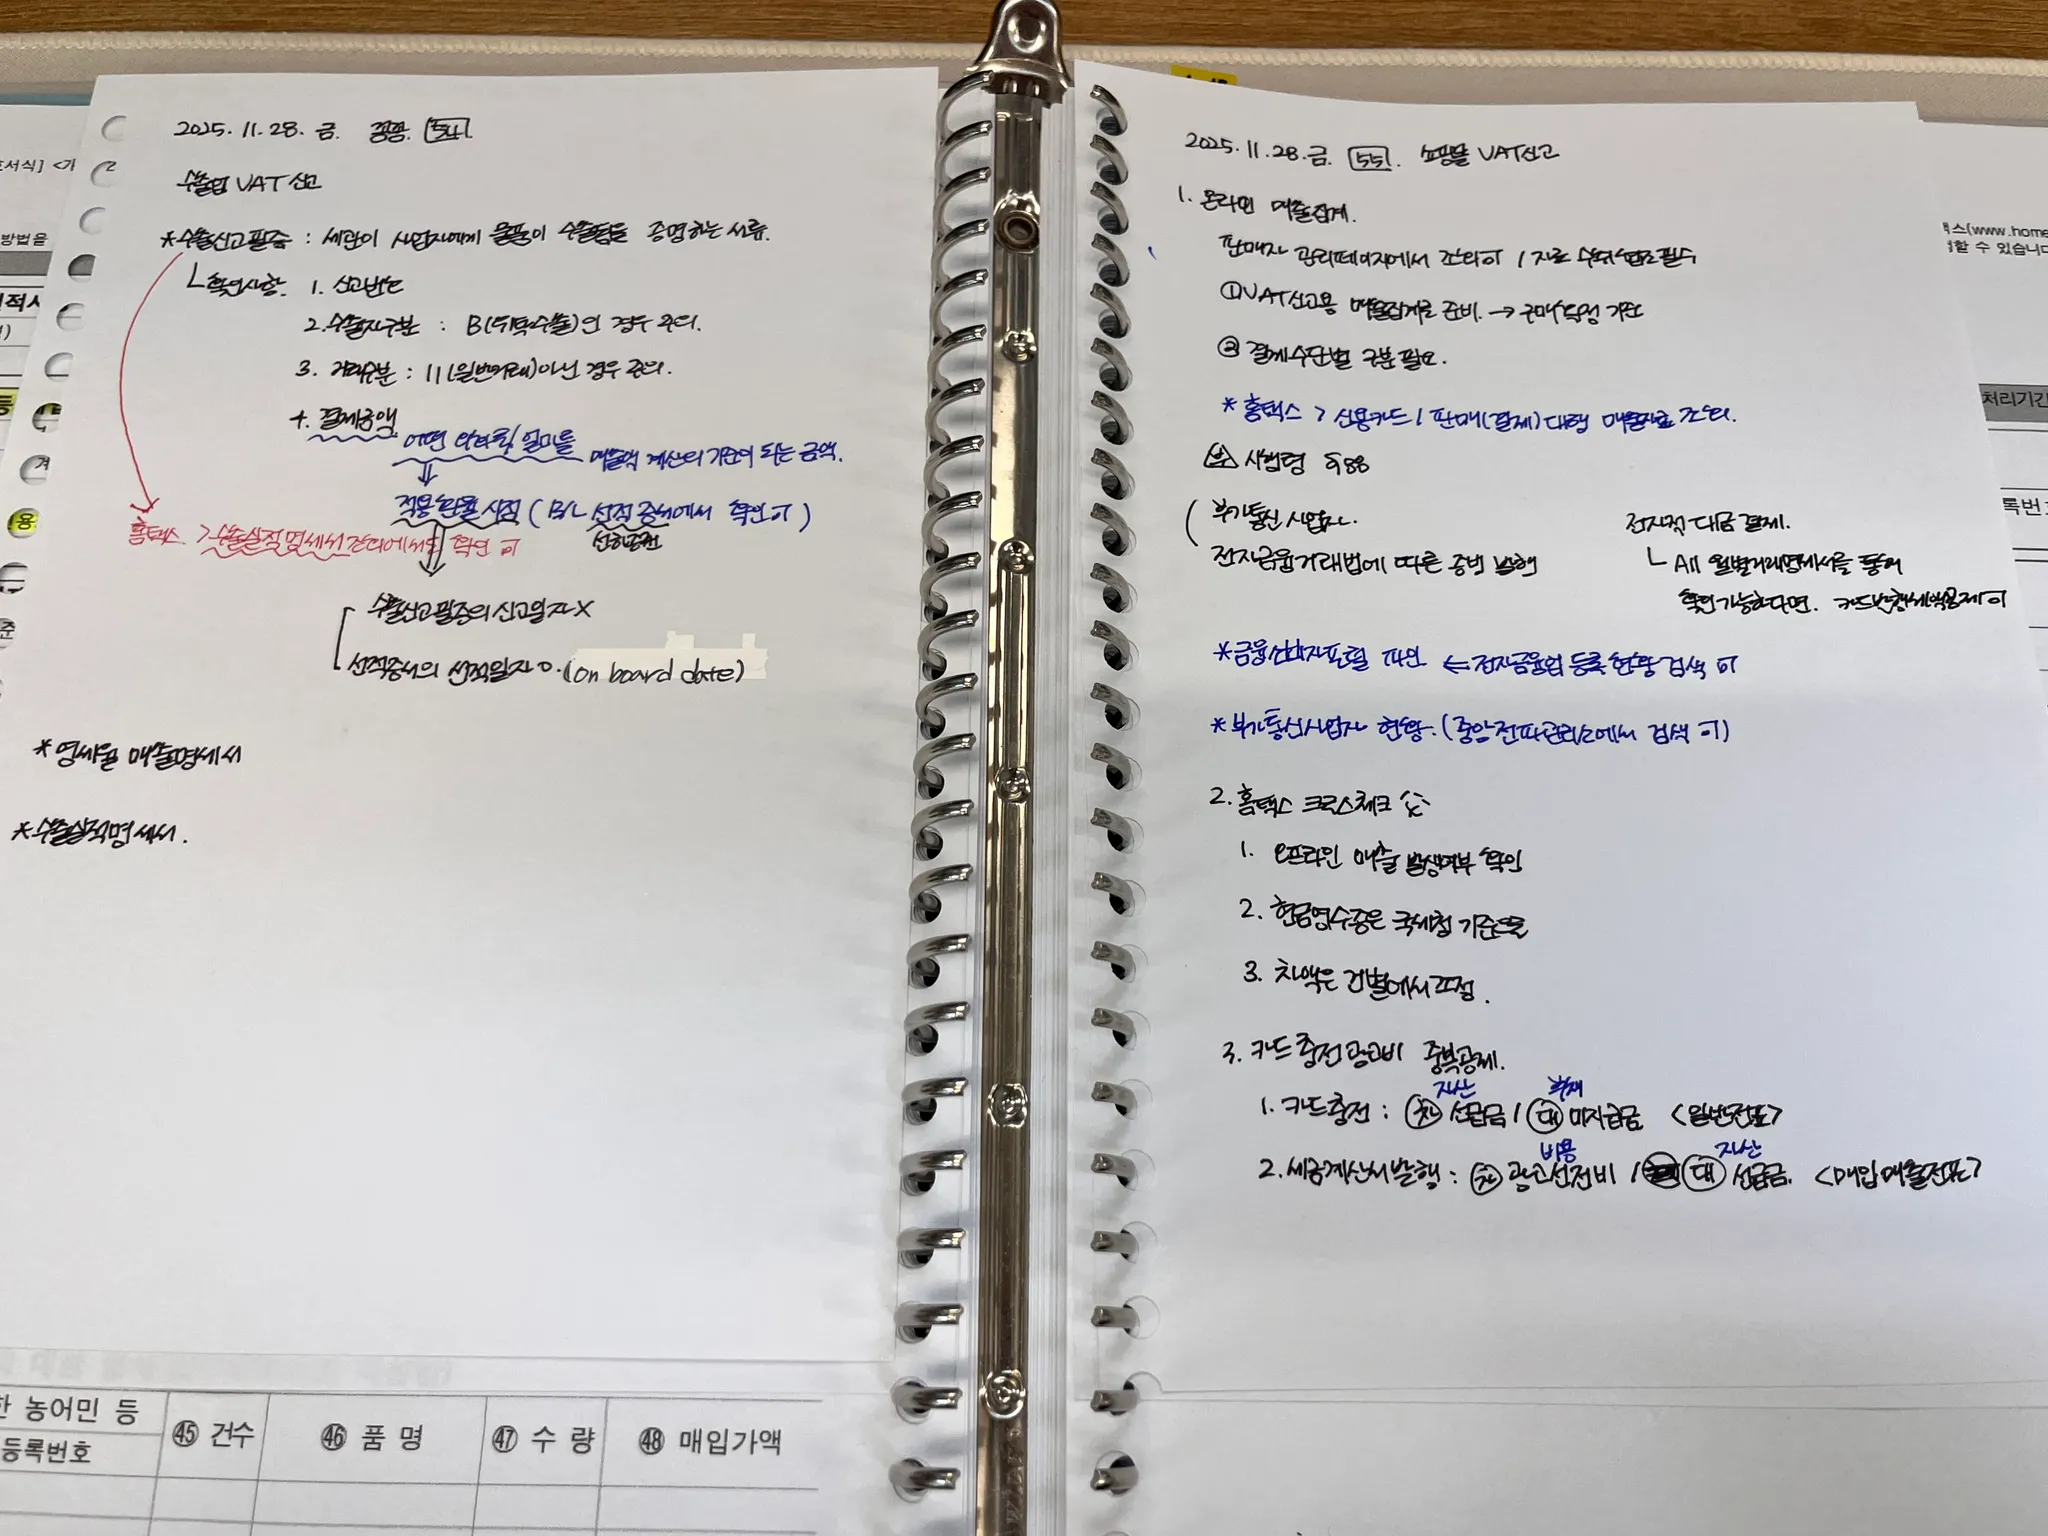 2025. 11. 28. 금. 54.
수출업 VAT 신고
*수출신고필증 : 세관이 사업자에게 물품이 수출됨을 증명하는 서류.
ㄴ확인사항. 1. 신고번호
2. 수출자구분 : B(위탁수출)인 경우 주의.
3. 거래구분 : 11(일반거래)아닌 경우 주의.
4. 결제금액
어떤 인코텀, 얼마를 매출액 계산의 기준이 되는 금액.
적용환율 시점 (B/L 선적 증서에서 확인 可)
선하증권
홈택스 > 수출실적명세서 조회에서도 확인 可
수출신고필증의 신고일자 X
선적증서의 선적일자 O. (on board date)
*영세율 매출명세서
*수출실적명세서.
한 농어민 등
등록번호
㊺ 건수
㊻ 품 명
㊼ 수 량
㊽ 매입가액
2025. 11. 28. 금. 55. 쇼핑몰 VAT신고
1. 온라인 매출집계.
판매자 관리페이지에서 조회可 / 자료 수취 필수
① VAT신고용 매출집계로 준비. → 구매확정 기준
② 결제수단별 구분 필요.
* 홈택스 > 신용카드 / 판매(결제)대행 매출자료 조회.
시행령 §88
부가통신 사업자.
전자금융거래법에 따른 증빙 발행
전자적 대금 결제.
ㄴ All 월별거래명세서를 통해
확인가능하다면. 카드발행세액공제 可
*금융소비자포털 파인 ⇐ 전자금융업 등록현황 검색 可
*부가통신사업자 현황. (중앙전파관리소에서 검색 可)
2. 홈택스 크로스체크
1. 오프라인 매출 발생여부 확인
2. 현금영수증은 국세청 기준으로
3. 차액은 건별에서 조정.
3. 카드충전 광고비 중복공제.
자산 부채
1. 카드충전 : 차 선급금 / 대 미지급금 <일반전표>
비용 자산
2. 세금계산서 발행 : 차 광고선전비 / 대 선급금. <매입매출전표>
처리기간